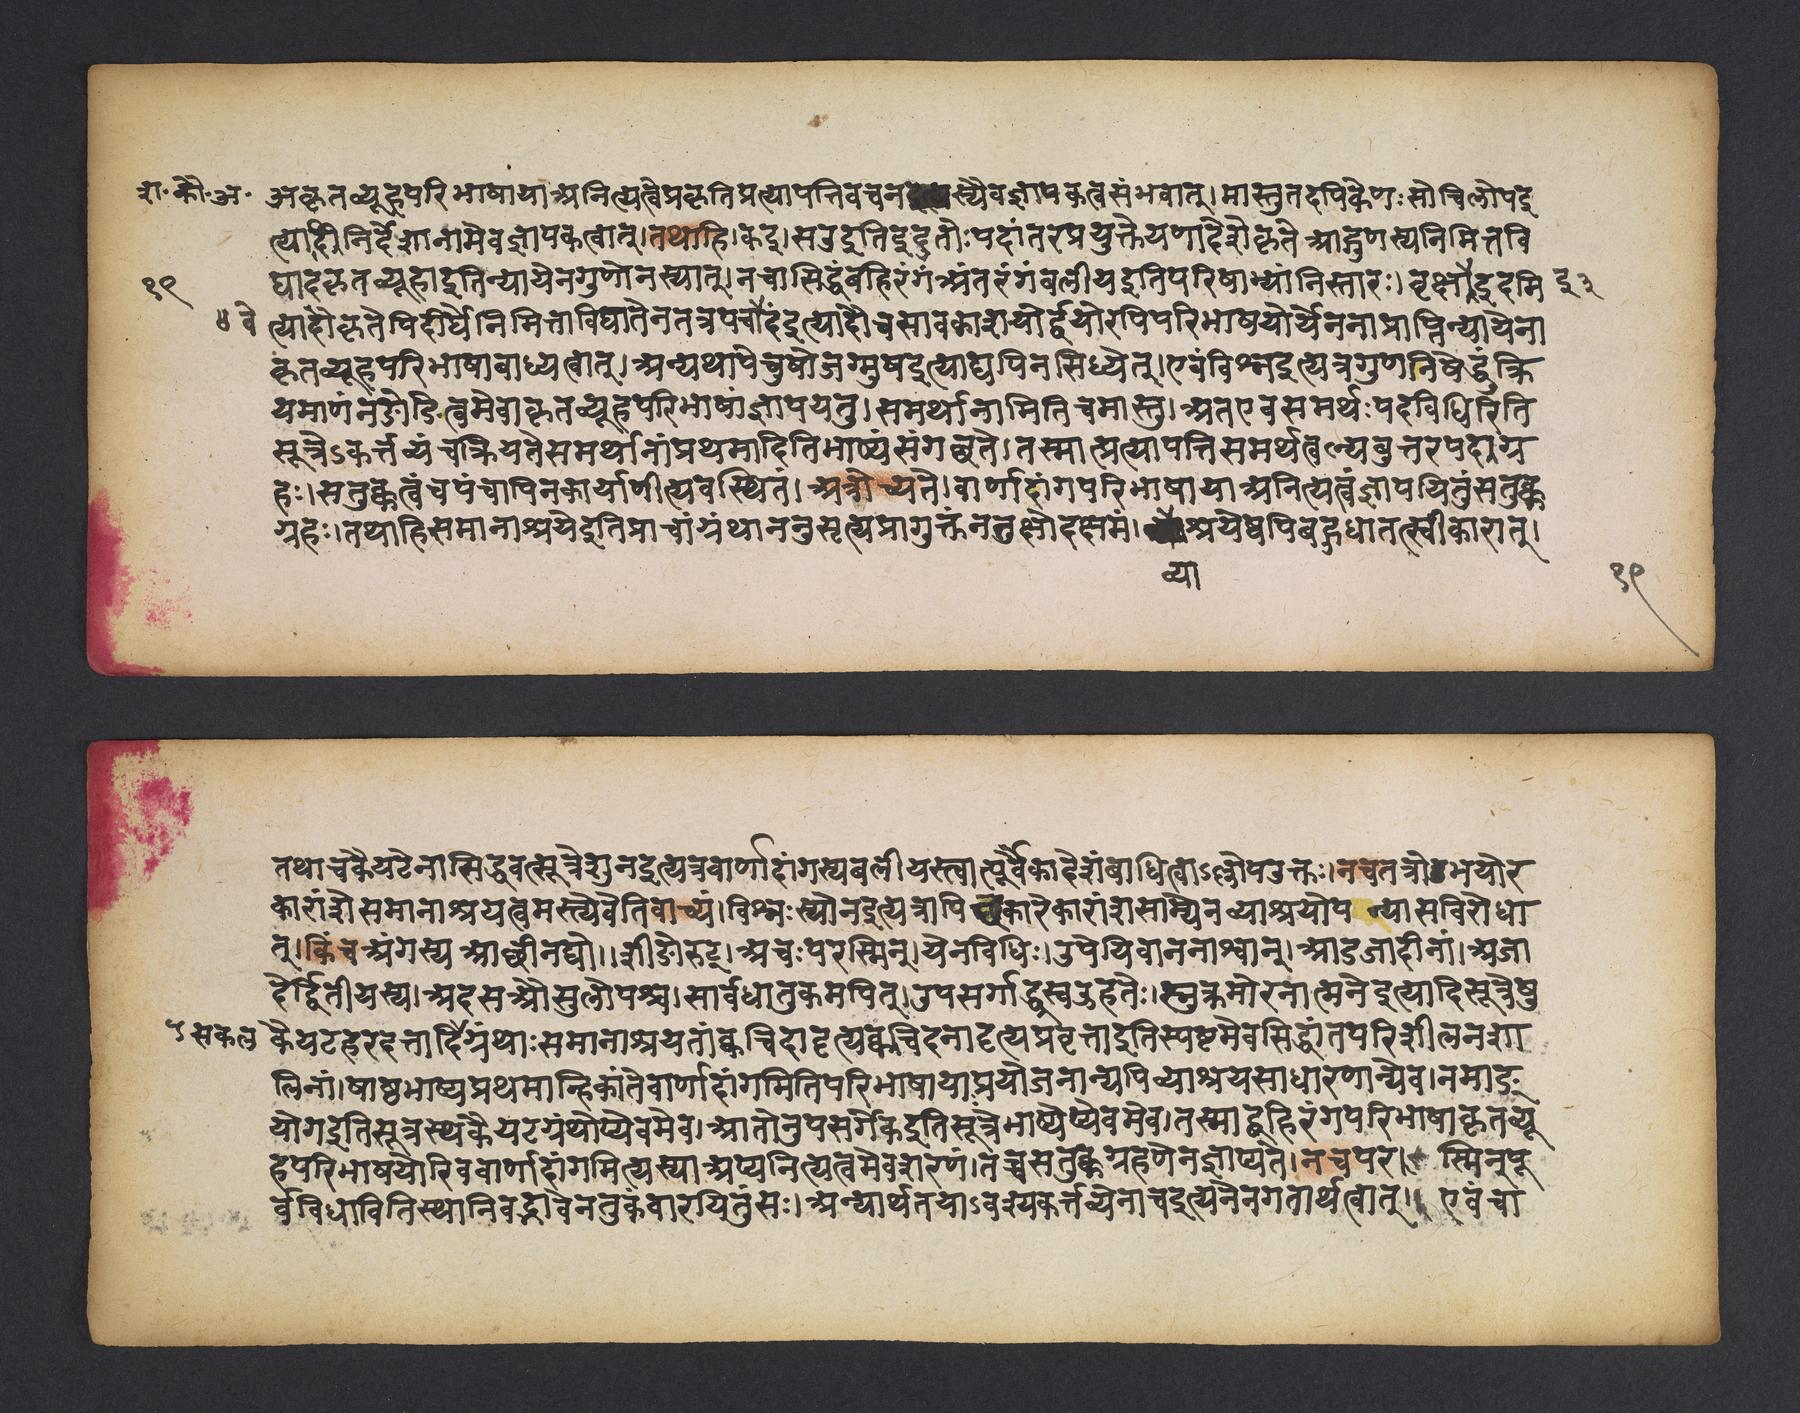 श॰ कौ॰ अ॰ अकृतव्यूहपरिभाषाया अनित्यत्वे प्रकृतिप्रत्यापत्तिवचन स्यैव ज्ञापकत्वसंभवात्। मास्तु तदपि केणः सोचि लोप इ
त्यादौ निर्देशानामेव ज्ञापकत्वात्। तथाहि। कइ। स उ इति दुद्रुतोः पदांतरप्रयुक्ते यणादेशे कृते आद्गुणस्य निमित्तवि
१९ घादकृतव्यूहा इति न्यायेन गुणो न स्यात्। न चासिद्धं बहिरंगं अंतरंगं बलीय इति परिभाषाभ्यां निस्तारः। वृक्षा इ इदमि
४ वे त्यादौ कृतेपि दीर्घे निमित्ताविघातेन तत्र पचा इदं इत्यादौ च सावकाशयोर्द्वयोरपि परिभाषयोर्येन नाप्राप्तिन्यायेना
कृतव्यूहपरिभाषाबाध्यत्वात्। अन्यथा पेचुषो जग्मुष इत्याद्यपि न सिध्येत्। एवं विश्न इत्यत्र गुणनिषेद्धुं क्रि
यमाणं नङो ङित्वमेवाकृतव्यूहपरिभाषां ज्ञापयतु। समर्थानामिति च मास्तु। अत एव समर्थः पदविधिरिति
सूत्रेऽकर्त्तव्यं च क्रियते समर्थानां प्रथमादिति भाष्यं संगच्छते। तस्मात्प्रत्यापत्तिसमर्थत्वल्यबुत्तरपदाग्र
हः। सतुक्कत्वं च पंचापि न कार्याणीत्यवस्थितं। अत्रोच्यते। वार्णादांगपरिभाषाया अनित्यत्वं ज्ञापयितुं सतुक्क
ग्रहः। तथाहि समानाश्रये इति प्राचां ग्रंथाननुसृत्य प्रागुक्तं न तु क्षोदक्षमं। श्रयेष्वपि बहुधा तत्स्वीकारात्।
व्या
१९
तथा च कैयटेनासिद्धवत्सूत्रे शुन इत्यत्र वार्णादांगस्य बलीयस्त्वात्पूर्वैकादेशं बाधित्वाऽल्लोप उक्तः। न च तत्रोभयोर
कारांशे समानाश्रयत्वमस्त्येवेति वाच्यं। विश्नः स्योन इत्यत्रापि कारेकारांशसाम्येन व्याश्रयोपन्यासविरोधा
त्। किं च अंगस्य आच्छीनद्यो।। शीङो रुट्। अचः परस्मिन्। येन विधिः। उपेयिवाननाश्वान्। आडजादीनां। अजा
देर्द्वितीयस्य। अदस औ सुलोपश्च। सार्वधातुकमपित्। उपसर्गाद्ध्रस्व ऊहतेः। स्नुक्रमोरनात्मने इत्यादिसूत्रेषु
ऽसकल कैयटहरदत्तादिग्रंथाः समानाश्रयतां क्वचिदादृत्य क्वचिदनादृत्य प्रवृत्ता इति स्पष्टमेव सिद्धांतपरिशीलनशा
लिनां। षाष्ठभाष्यप्रथमान्हिकांते वार्णादांगमिति परिभाषाया प्रयोजनान्यपि व्याश्रयसाधारणान्येव। न माङ्
योग इति सूत्रस्थकैयटग्रंथोप्येवमेव। आतोनुपसर्गे क इति सूत्रे भाष्येप्येवमेव। तस्माद्बहिरंगपरिभाषाकृतव्यू
हपरिभाषयोरिव वार्णादांगमित्यस्या अप्यनित्यत्वमेव शरणं। तच्च सतुक्कग्रहणेन ज्ञाप्यते। न च पर। स्मिन्पू
र्वविधाविति स्थानिवद्भावेन तुकं वारयितुं सः। अन्यार्थतयाऽवश्यकर्त्तव्येनाच इत्यनेनैव गतार्थत्वात्। एवं चा